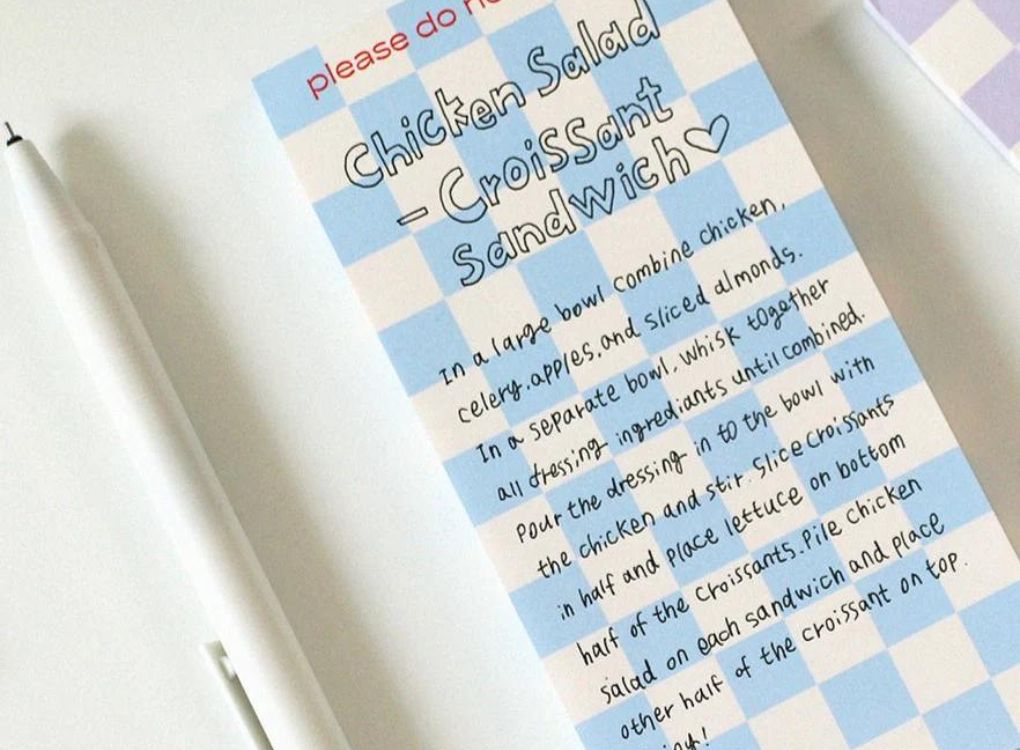 please do
Chicken Salad
- Croissant
Sandwich♡
In a large bowl combine chicken,
celery, apples, and sliced almonds.
In a separate bowl, whisk together
all dressing ingrediants until combined.
Pour the dressing in to the bowl with
the chicken and stir. Slice croissants
in half and place lettuce on bottom
half of the croissants. Pile chicken
salad on each sandwich and place
other half of the croissant on top.